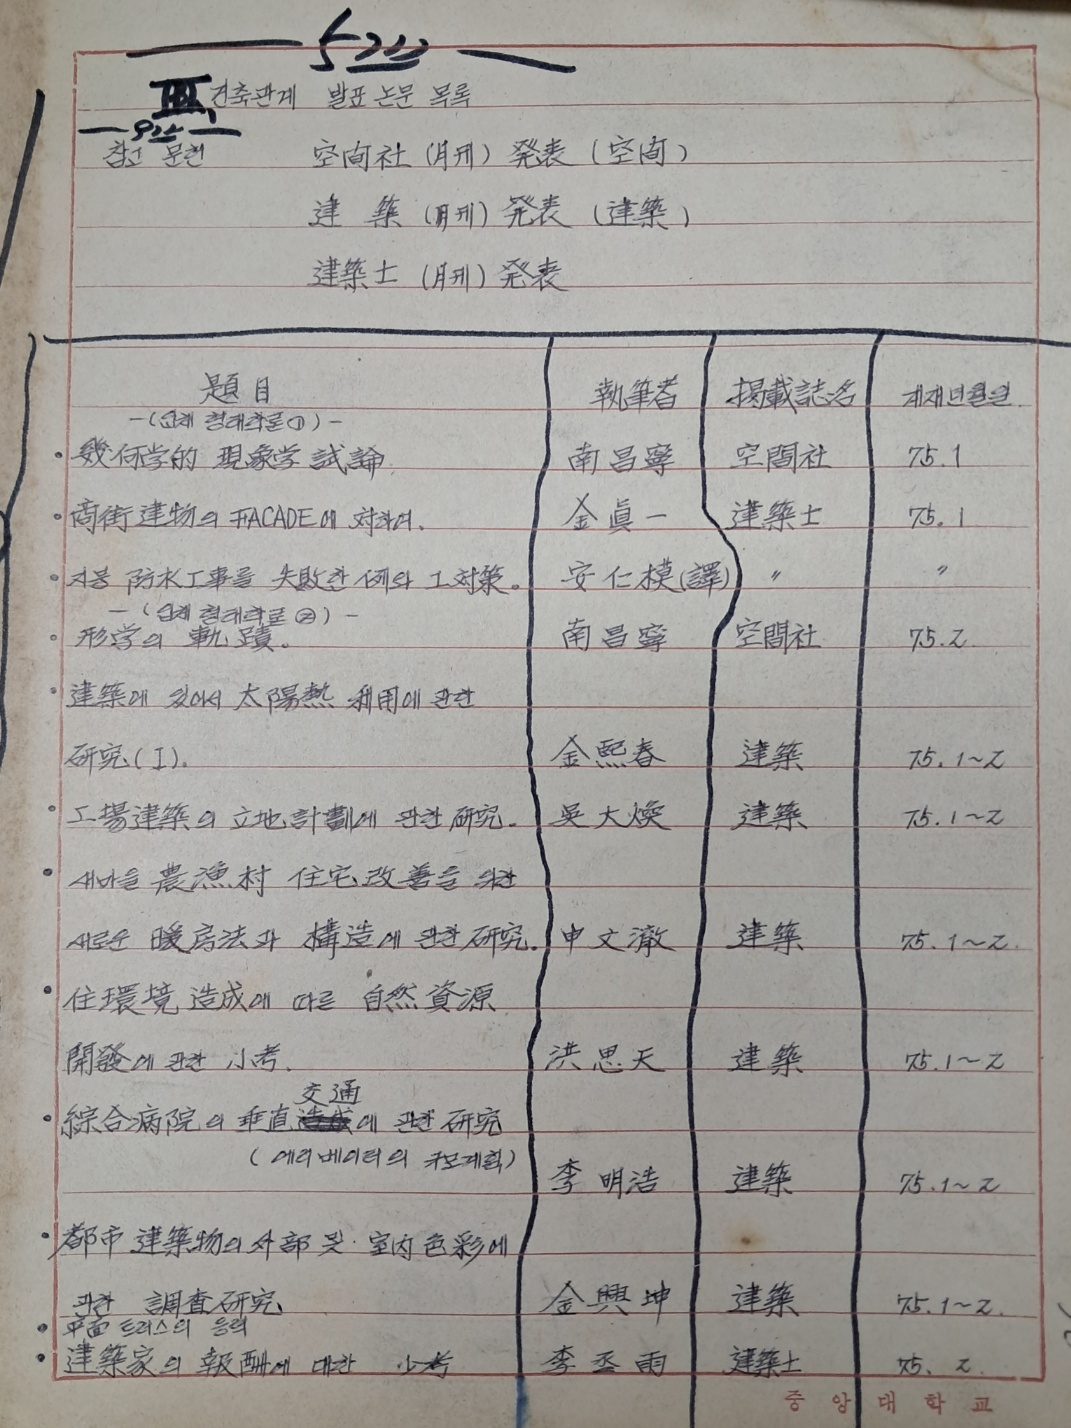 III. 건축관계 발표 논문 목록
참고 문헌 空间社 (月刊) 発表 (空间)
建 築 (月刊) 発表 (建築)
建築士 (月刊) 発表
題目 執筆者 掲載誌名 게재년월일
-(입체 형태학론 ①)-
• 幾何学的 現象学 試論. 南昌寧 空間社 75.1
• 商街建物의 FACADE에 対하여. 金眞一 建築士 75.1
• 지붕 防水工事를 失敗한 例와 그 対策. 安仁模(譯) 〃 〃
-(입체 형태학론 ②)-
• 形学의 軌蹟. 南昌寧 空間社 75.2
• 建築에 있어서 太陽熱 利用에 관한
研究(I). 金熙春 建築 75.1~2
• 工場建築의 立地計劃에 관한 研究. 吳大煥 建築 75.1~2
• 새마을 農漁村 住宅改善을 위한
새로운 暖房法과 構造에 관한 研究. 申文澈 建築 75.1~2.
• 住環境 造成에 따른 自然資源
開發에 관한 小考. 洪思天 建築 75.1~2
交通
• 綜合病院의 垂直 에 관한 研究
(에리베이터의 규모계획)
李明浩 建築 75.1~2
• 都市 建築物의 外部 및 室内色彩에
관한 調査研究 金興坤 建築 75.1~2.
• 平面 트러스의 응력
• 建築家의 報酬에 대한 小考 李丞雨 建築士 75. 2.
중앙대학교